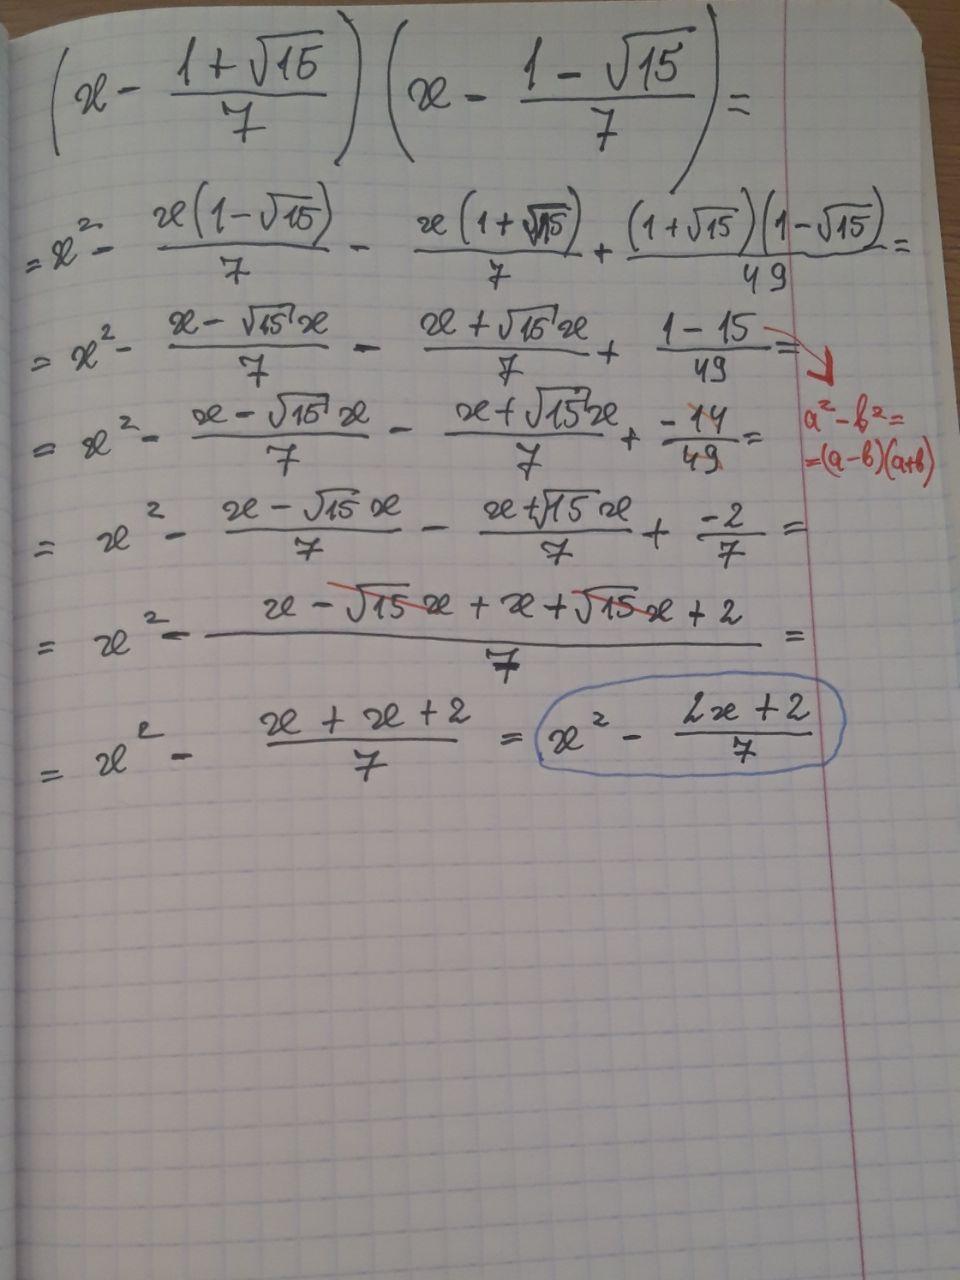 (x - (1 + √15)/7) (x - (1 - √15)/7) =
= x² - x(1 - √15)/7 - x(1 + √15)/7 + (1 + √15)(1 - √15)/49 =
= x² - (x - √15 x)/7 - (x + √15 x)/7 + (1 - 15)/49 =
a² - b² =
= (a - b)(a + b)
= x² - (x - √15 x)/7 - (x + √15 x)/7 + (-14)/49 =
= x² - (x - √15 x)/7 - (x + √15 x)/7 + (-2)/7 =
= x² - (x - √15 x + x + √15 x + 2)/7 =
= x² - (x + x + 2)/7 = x² - (2x + 2)/7